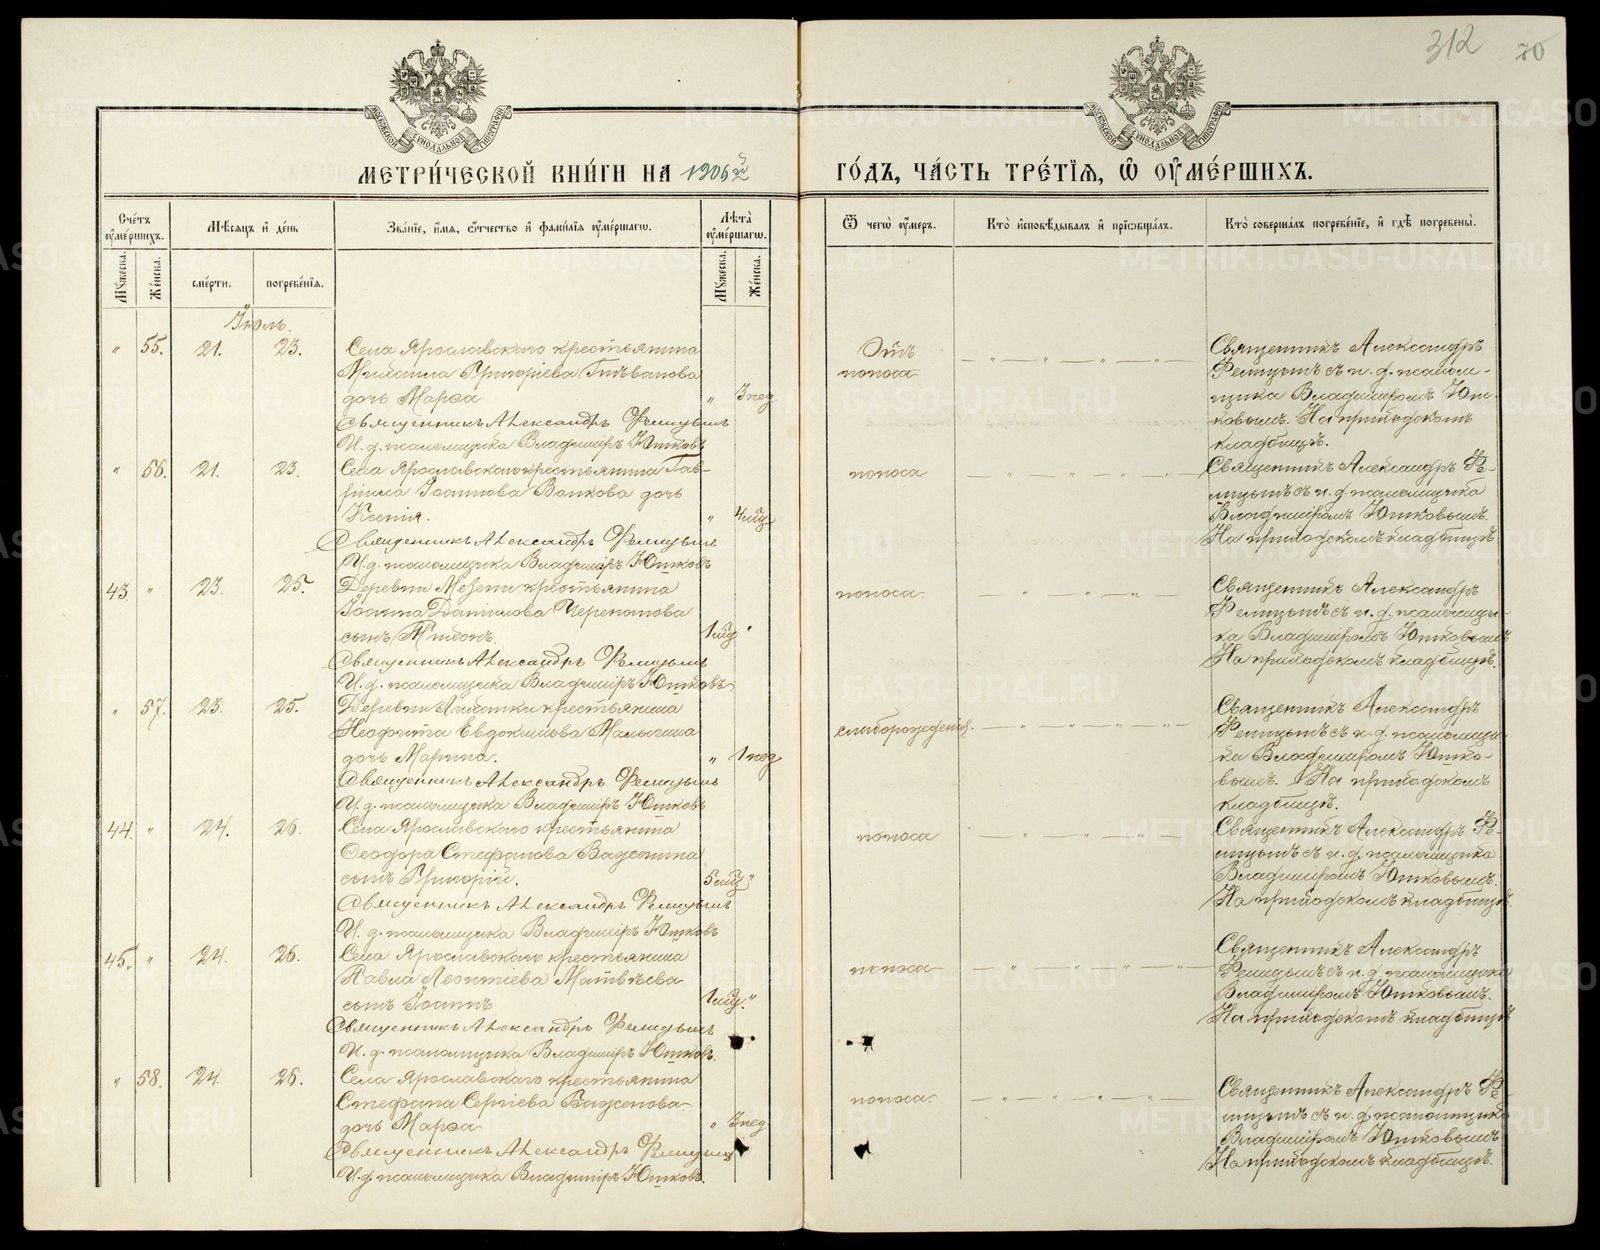 312 70
МОСКОВСКОЙ СѴНОДАЛЬНОЙ ТИПОГРАФІИ
МОСКОВСКОЙ СѴНОДАЛЬНОЙ ТИПОГРАФІИ
МЕТРИ́ЧЕСКОЙ КНИ́ГИ НА 1906й ГО́ДЪ, ЧА́СТЬ ТРЕ́ТІѦ, Ѡ҆ ОУ҆МЕ́РШИХЪ.
Сче́тъ оу҆ме́ршихъ.
Мѣ́сяцъ и҆ де́нь
Зва́нїе, и҆́мя, ѻ҆́тчество и҆ фами́лїя оу҆ме́ршагѡ.
Лѣта̀ оу҆ме́ршагѡ.
Ѿ чегѡ̀ оу҆́меръ.
Кто̀ и҆сповѣ́дывалъ и҆ прїѡбща́лъ.
Кто̀ соверша́лъ погребе́нїе, и҆ гдѣ̀ погребены̀.
Мꙋ́жеска.
Же́нска.
сме́рти.
погребе́нїя.
Мꙋ́жеска.
Же́нска.
Іюль.
" 55. 21. 23. Села Ярославскаго крестьянина
Михаила Григоріева
дочь Марѳа " 3 нед.
Священникъ Александръ Фелицынъ
И. д. псаломщика Владиміръ Юшковъ
Отъ
поноса
— " — " — " — " —
Священникъ Александръ
Фелицынъ съ и. д. псалом-
щика Владиміромъ Юш-
ковымъ. На приходскомъ
кладбищѣ.
" 56. 21. 23. Села Ярославскаго крестьянина Гав-
ріила Іоаннова Волкова дочь
Ксенія. " 4 мѣс.
Священникъ Александръ Фелицынъ
И. д. псаломщика Владиміръ Юшковъ
поноса
— " — " — " — " —
Священникъ Александръ Фе-
лицынъ съ и. д. псаломщика
Владиміромъ Юшковымъ.
На приходскомъ кладбищѣ
43. " 23. 25. Деревни Мезени крестьянина
Іоанна Даніилова Черепанова
сынъ Тихонъ. 1 мѣс. "
Священникъ Александръ Фелицынъ
И. д. псаломщика Владиміръ Юшковъ
поноса
— " — " — " — " —
Священникъ Александръ
Фелицынъ съ и. д. псаломщи-
ка Владиміромъ Юшковымъ
На приходскомъ кладбищѣ.
" 57. 23. 25. Деревни крестьянина
Неофита Евдокимова Малыгина
дочь Марина. " 1 нед.
Священникъ Александръ Фелицынъ
И. д. псаломщика Владиміръ Юшковъ
слаборожденія.
— " — " — " — " —
Священникъ Александръ
Фелицынъ съ и. д. псаломщи-
ка Владиміромъ Юшко-
вымъ. На приходскомъ
кладбищѣ.
44. " 24. 26. Села Ярославскаго крестьянина
Ѳеодора Стефанова Баженина
сынъ Григорій. 5 мѣс. "
Священникъ Александръ Фелицынъ
И. д. псаломщика Владиміръ Юшковъ
поноса
— " — " — " — " —
Священникъ Александръ Фе-
лицынъ съ и. д. псаломщика
Владиміромъ Юшковымъ.
На приходскомъ кладбищѣ.
45. " 24. 26. Села Ярославскаго крестьянина
Павла Леонтіева Матвѣева
сынъ Іоаннъ 1 мѣс. "
Священникъ Александръ Фелицынъ
И. д. псаломщика Владиміръ Юшковъ.
поноса
— " — " — " — " —
Священникъ Александръ
Фелицынъ съ и. д. псаломщика
Владиміромъ Юшковымъ.
На приходскомъ кладбищѣ
" 58. 24. 26. Села Ярославскаго крестьянина
Стефана Сергіева Баженова
дочь Марѳа " 3 нед.
Священникъ Александръ Фелицынъ
И. д. псаломщика Владиміръ Юшковъ.
поноса.
— " — " — " — " —
Священникъ Александръ Фе-
лицынъ съ и. д. псаломщика
Владиміромъ Юшковымъ
На приходскомъ кладбищѣ.
METRIKI.GASO-URAL.RU